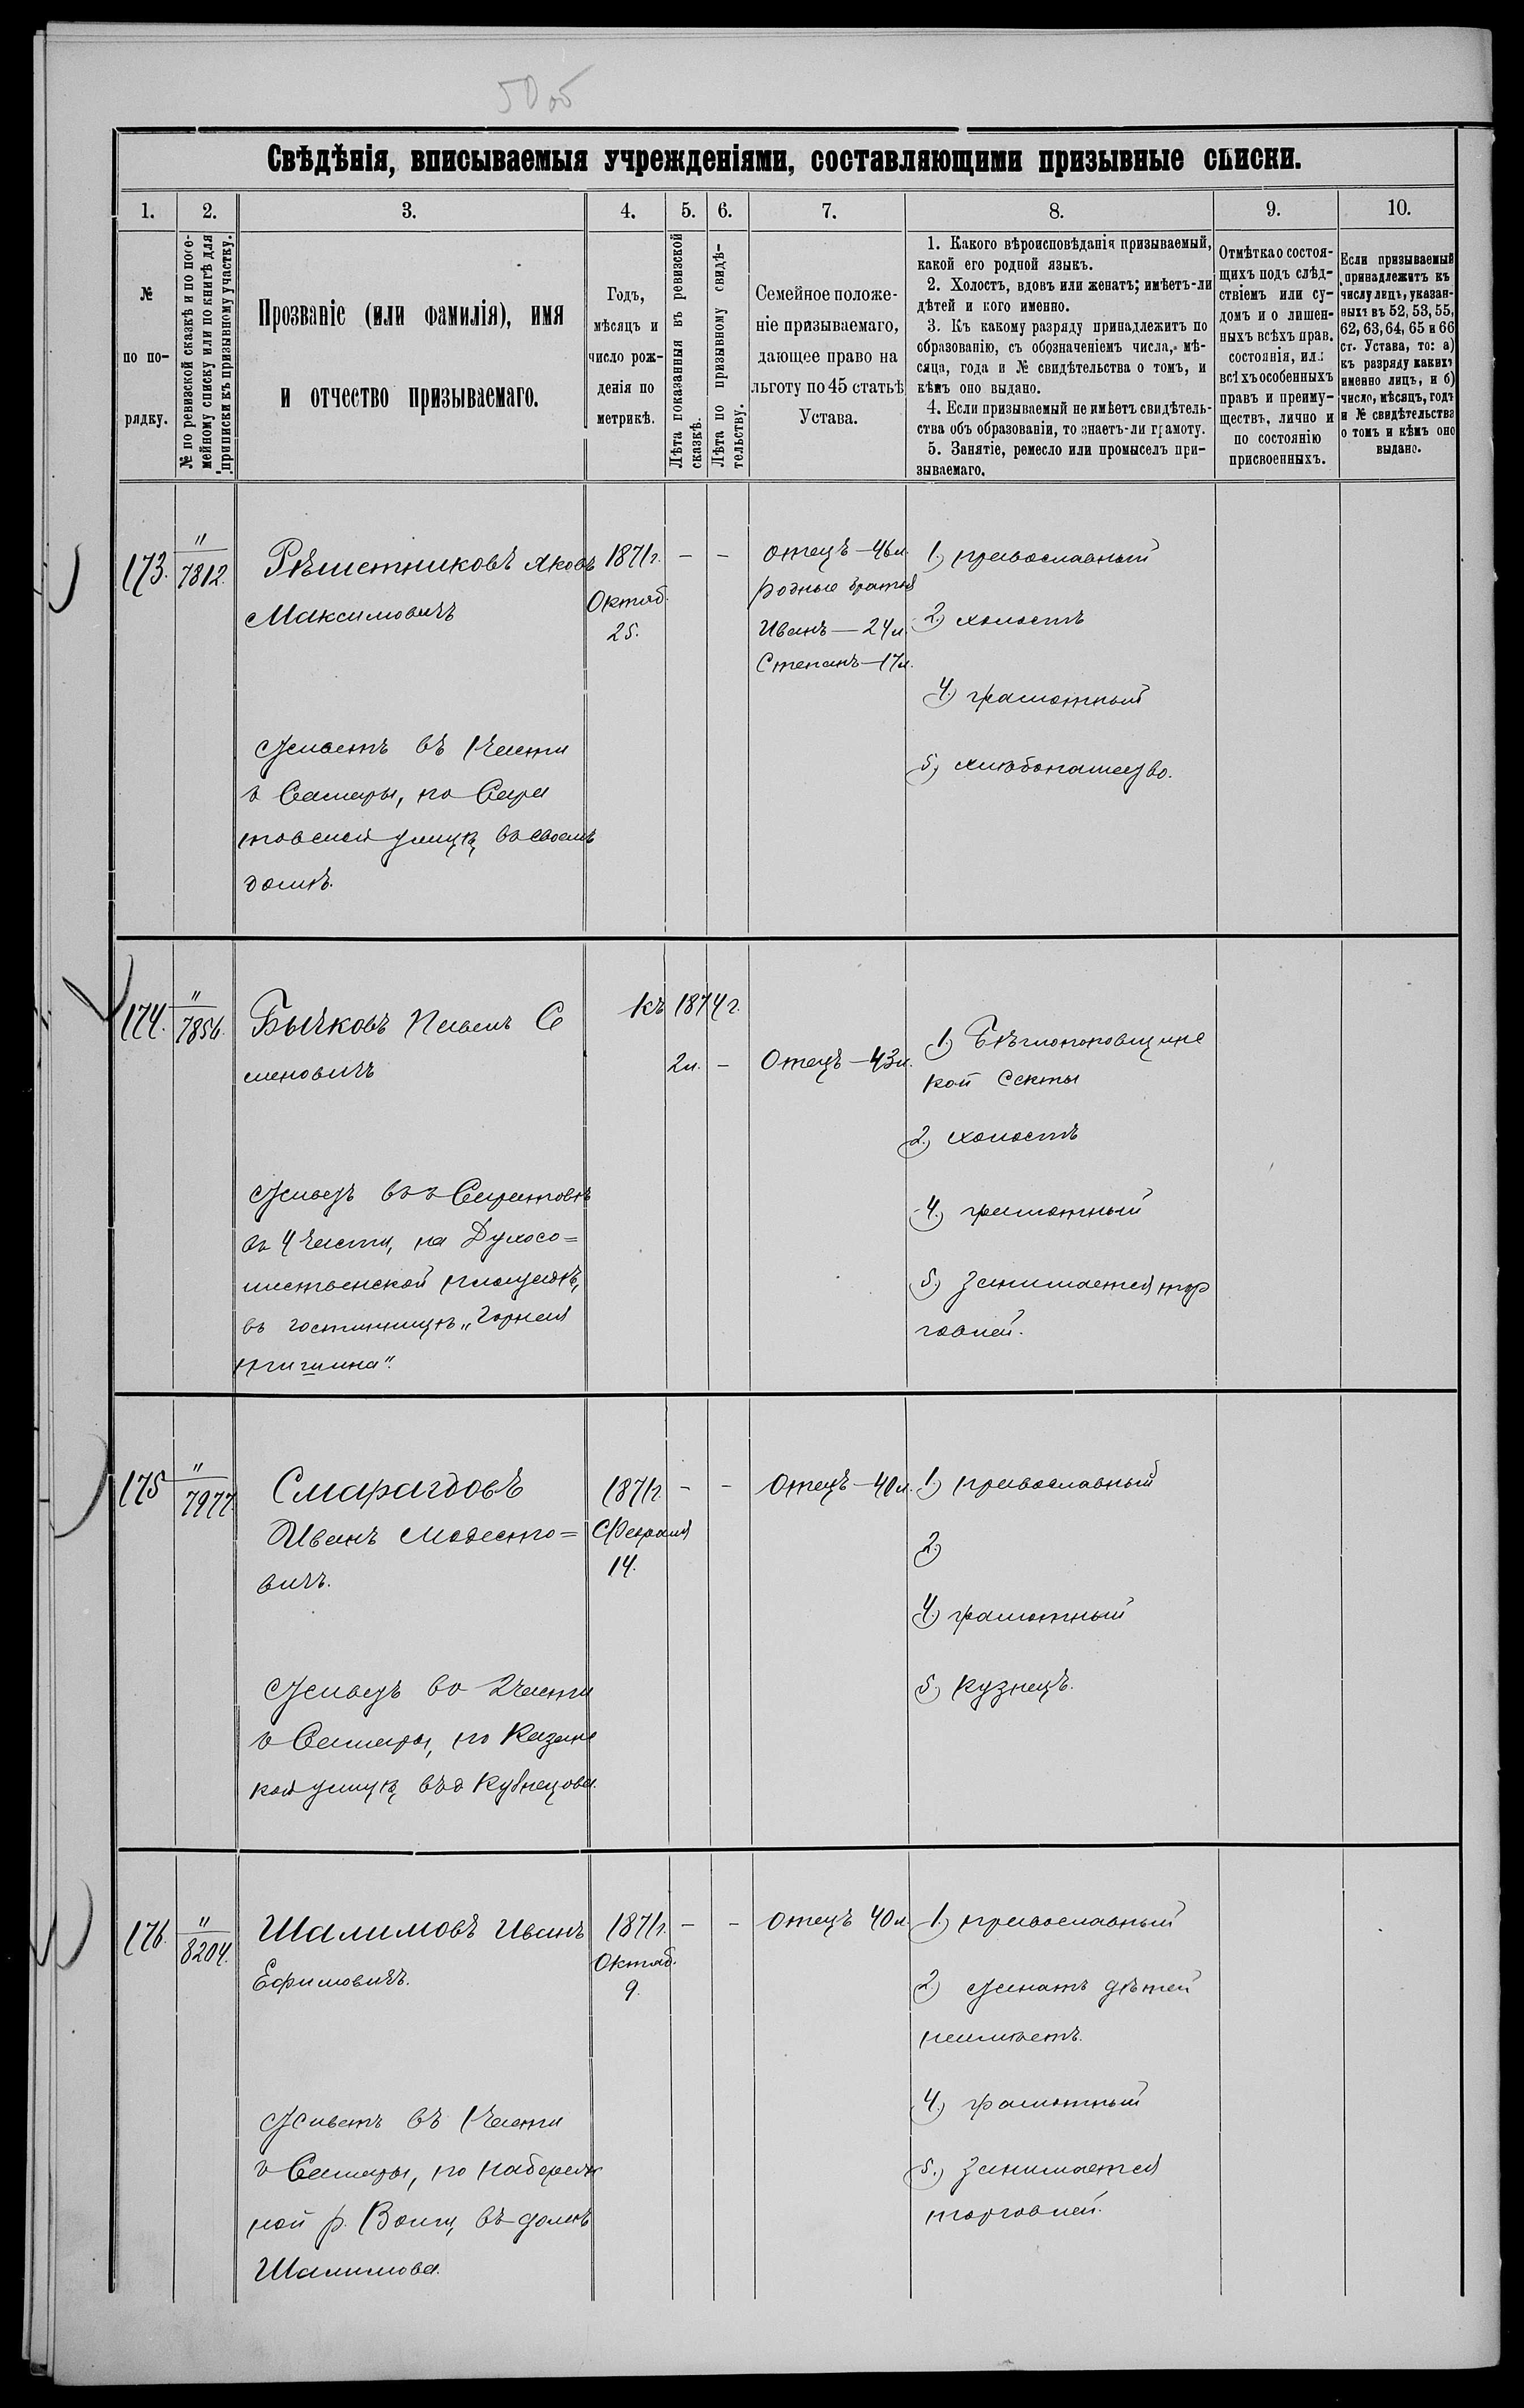 50 об
Свѣдѣнія, вписываемыя учрежденіями, составляющими призывные списки.
1. 2. 3. 4. 5. 6. 7. 8. 9. 10.
№
по по-
рядку.
№ по ревизской сказкѣ и по посе-
мейному списку или по книгѣ для
приписки къ призывному участку.
Прозваніе (или фамилія), имя
и отчество призываемаго.
Годъ,
мѣсяцъ и
число рож-
денія по
метрикѣ.
Лѣта показанныя въ ревизской
сказкѣ.
Лѣта по призывному свидѣ-
тельству.
Семейное положе-
ніе призываемаго,
дающее право на
льготу по 45 статьѣ
Устава.
1. Какого вѣроисповѣданія призываемый,
какой его родной языкъ.
2. Холостъ, вдовъ или женатъ; имѣетъ-ли
дѣтей и кого именно.
3. Къ какому разряду принадлежитъ по
образованію, съ обозначеніемъ числа, мѣ-
сяца, года и № свидѣтельства о томъ, и
кѣмъ оно выдано.
4. Если призываемый не имѣетъ свидѣтель-
ства объ образованіи, то знаетъ-ли грамоту.
5. Занятіе, ремесло или промыселъ при-
зываемаго.
Отмѣтка о состоя-
щихъ подъ слѣд-
ствіемъ или су-
домъ и о лишен-
ныхъ всѣхъ прав.
состоянія, или
всѣхъ особенныхъ
правъ и преиму-
ществъ, лично и
по состоянію
присвоенныхъ.
Если призываемый
принадлежитъ къ
числу лицъ, указан-
ныхъ въ 52, 53, 55,
62, 63, 64, 65 и 66
ст. Устава, то: а)
къ разряду какихъ
именно лицъ, и б)
число, мѣсяцъ, годъ
и № свидѣтельства
о томъ и кѣмъ оно
выдано.
173. "
7812.
Рѣшетниковъ Яковъ
Максимовичъ
Живетъ въ 1 части
г Самары, по Сара
товской улицѣ, въ своемъ
домѣ.
1871 г.
Октяб.
25.
– –
Отецъ – 46 л.
родные братья
Иванъ – 24 л.
Степанъ – 17 л.
1) православный
2) холостъ
4) грамотный
5) хлѣбопашество.
174. "
7856.
Бычковъ Павелъ Се
меновичъ
Живетъ въ г Саратовѣ
въ 4 части, на Духосо=
шественской площадкѣ,
въ гостинницѣ "Горная
къ 1874 г.
2 л. –
Отецъ – 43 л.
1) Бѣглопоповщинс
кой секты
2) холостъ
4) грамотный
5) Занимается тор
говлей.
175 "
7977.
Смарагдовъ
Иванъ Модесто=
вичъ.
Живетъ во 2 части
г Самары, по Казанс
кой улицѣ, въ д Кузнецова.
1871 г.
Февраля
14.
– –
Отецъ – 40 л.
1) православный
2)
4) грамотный
5) Кузнецъ.
176. "
8204.
Шалимовъ Иванъ
Ефимовичъ.
Живетъ въ 1 части
г Самары, по Набереж
ной р. Волги, въ домѣ
Шалимова.
1871 г.
Октяб.
9.
– –
Отецъ 40 л.
1) православный
2) Женатъ дѣтей
неимѣетъ.
4) грамотный
5.) Занимается
торговлей.